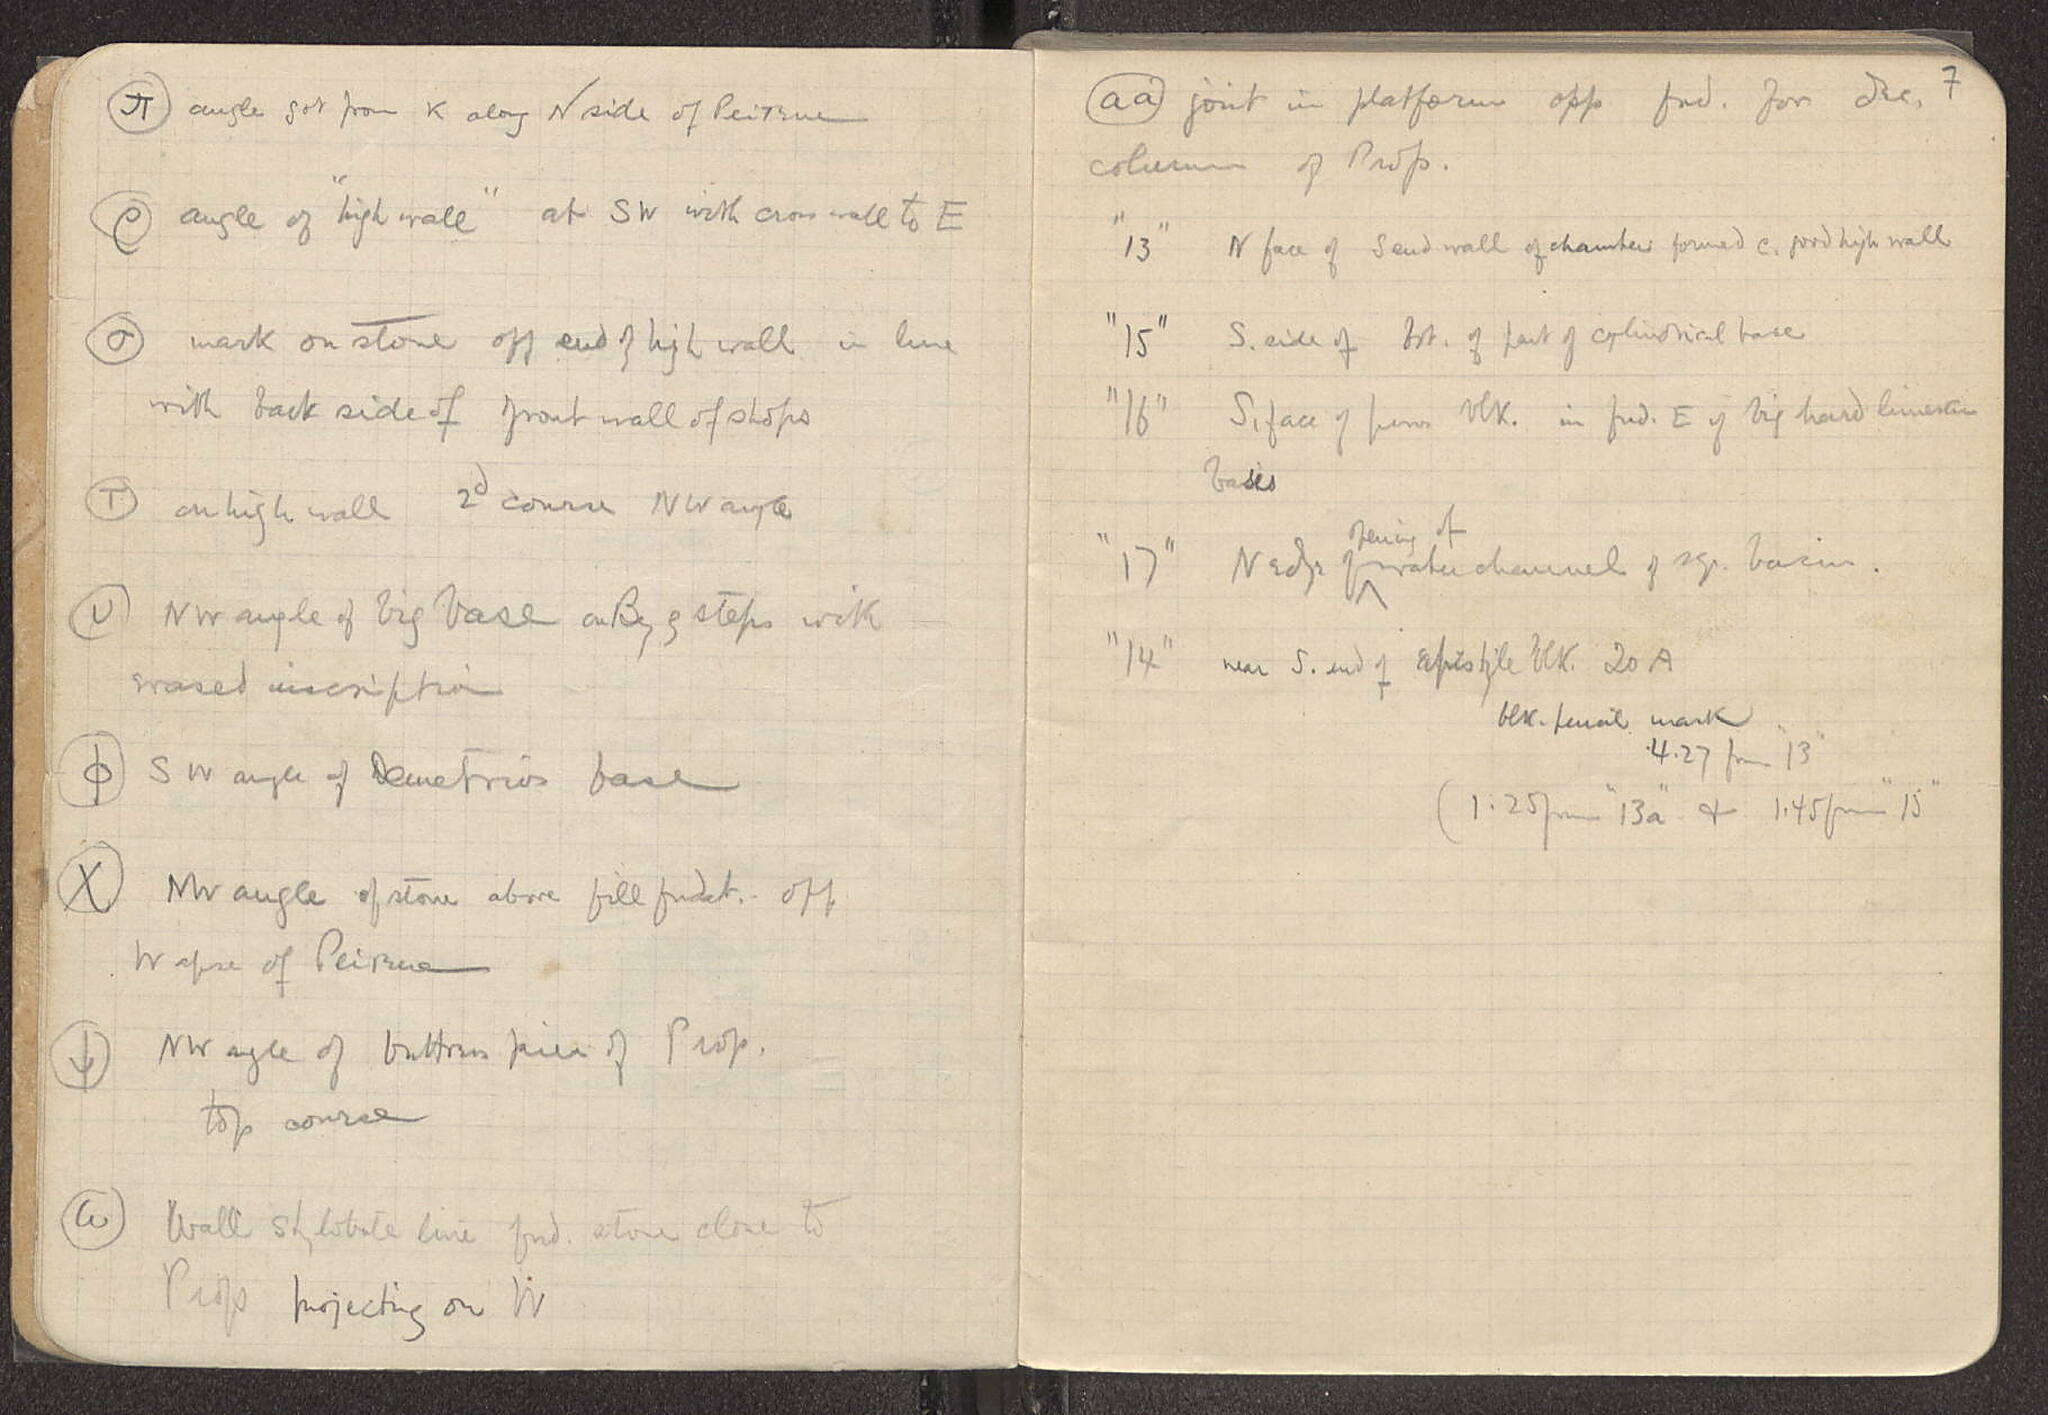 π angle got from K along N side of Peirene
ρ angle of "high wall" at SW with cross wall to E
σ mark on stone off end of high wall in line
with back side of front wall of shops
T on high wall 2d course NW angle
υ NW angle of big base on Byz steps with
erased inscription
φ SW angle of Demetrios base
X NW angle of stone above fill fndat. off
W apse of Peirene
ψ NW angle of buttress pier of Prop.
top course
ω Wall stylobate line fnd. stone close to
Prop projecting on W
7
aa joint in platform opp fnd. for dec.
column of Prop.
"13" N face of S end wall of chamber formed c. good high wall
"15" S. side of bot. of part of cylindrical base
"16" S. face of poros blk. in fnd. E of big hard limestn
basis
"17" N edge of opening of water channel of sq. basin.
"14" near S. end of epistyle blk. 20 A
blk. pencil mark
4.27 from "13"
(1.25 from "13a" & 1.45 from "15"